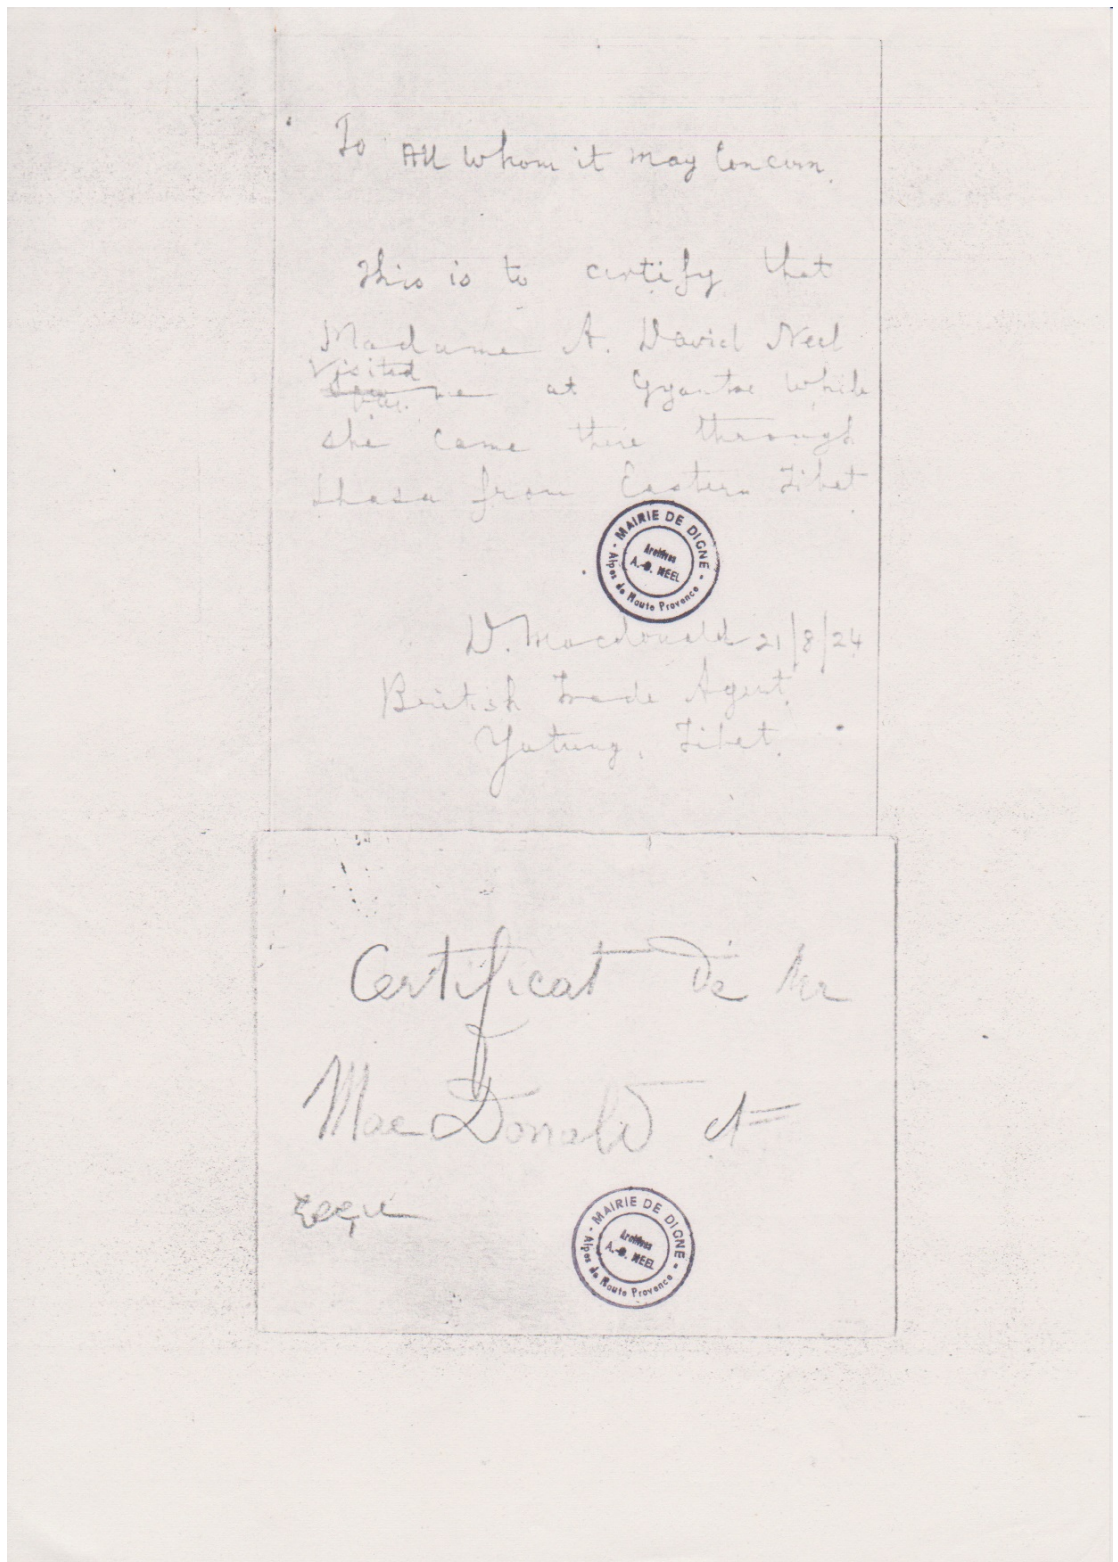 To All Whom it may Concern.
This is to certify that
Madame A. David Neel
Visited
me at Gyantse while
she came there through
Lhasa from Eastern Tibet
MAIRIE DE DIGNE
Archives
A.-D. NEEL
Alpes de Haute Provence
D. Macdonald 21/8/24
British Trade Agent.
Yatung, Tibet.
Certificat de Mr
MacDonald
MAIRIE DE DIGNE
Archives
A.-D. NEEL
Alpes de Haute Provence